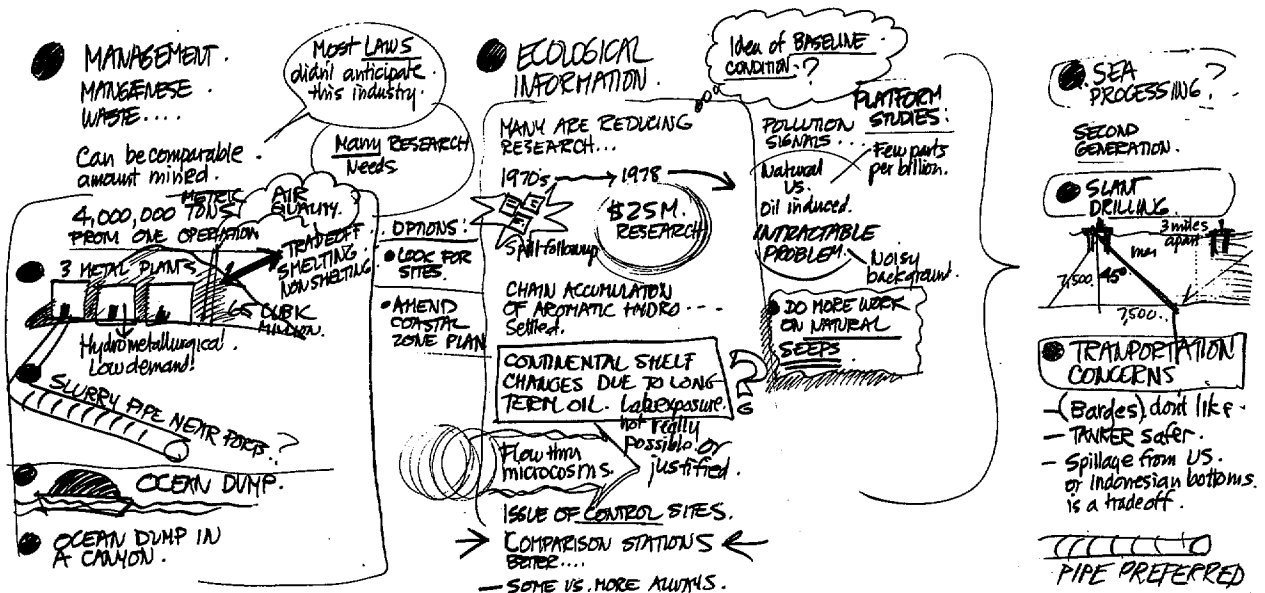 MANAGEMENT.
MANGENESE
WASTE....
Can be comparable
amount mined.
Most LAWS
didn't anticipate
this industry.
Many RESEARCH
Needs
METRIC
4,000,000 TONS
FROM ONE OPERATION
AIR
QUALITY.
TRADEOFF
SMELTING
NONSMELTING
3 METAL PLANTS
CUBIC
MILLION.
Hydrometallurgical.
Low demand!
SLURRY PIPE NEAR PORTS..?
OCEAN DUMP.
OCEAN DUMP IN
A CANYON.
OPTIONS:
LOOK FOR
SITES.
AMEND
COASTAL
ZONE PLAN
ECOLOGICAL
INFORMATION.
MANY ARE REDUCING
RESEARCH...
1970's 1978
$25M.
RESEARCH
Spill followup
CHAIN ACCUMULATON
OF AROMATIC HYDRO ----
Settled.
CONTINENTAL SHELF
CHANGES DUE TO LONG
TERM OIL. Lab exposure.
not really
possible. or
justified.
Flow thru
microcosms.
ISSUE OF CONTROL SITES.
COMPARISON STATIONS
BETTER....
— SOME US. MORE ALWAYS.
Idea of BASELINE
CONDITION.?
PLATFORM
STUDIES:
POLLUTION
SIGNALS ....
Few parts
per billion.
Natural
vs.
Oil induced.
INTRACTABLE
PROBLEM.
Noisy
background.
DO MORE WORK
ON NATURAL
SEEPS
SEA
PROCESSING?
SECOND
GENERATION.
SLANT
DRILLING.
3 miles
apart
7,500.
45°
7,500...
TRANPORTATION
CONCERNS
— (Barges) don't like.
— TANKER safer.
— Spillage from US.
or Indonesian bottoms.
is a tradeoff.
PIPE PREFERRED